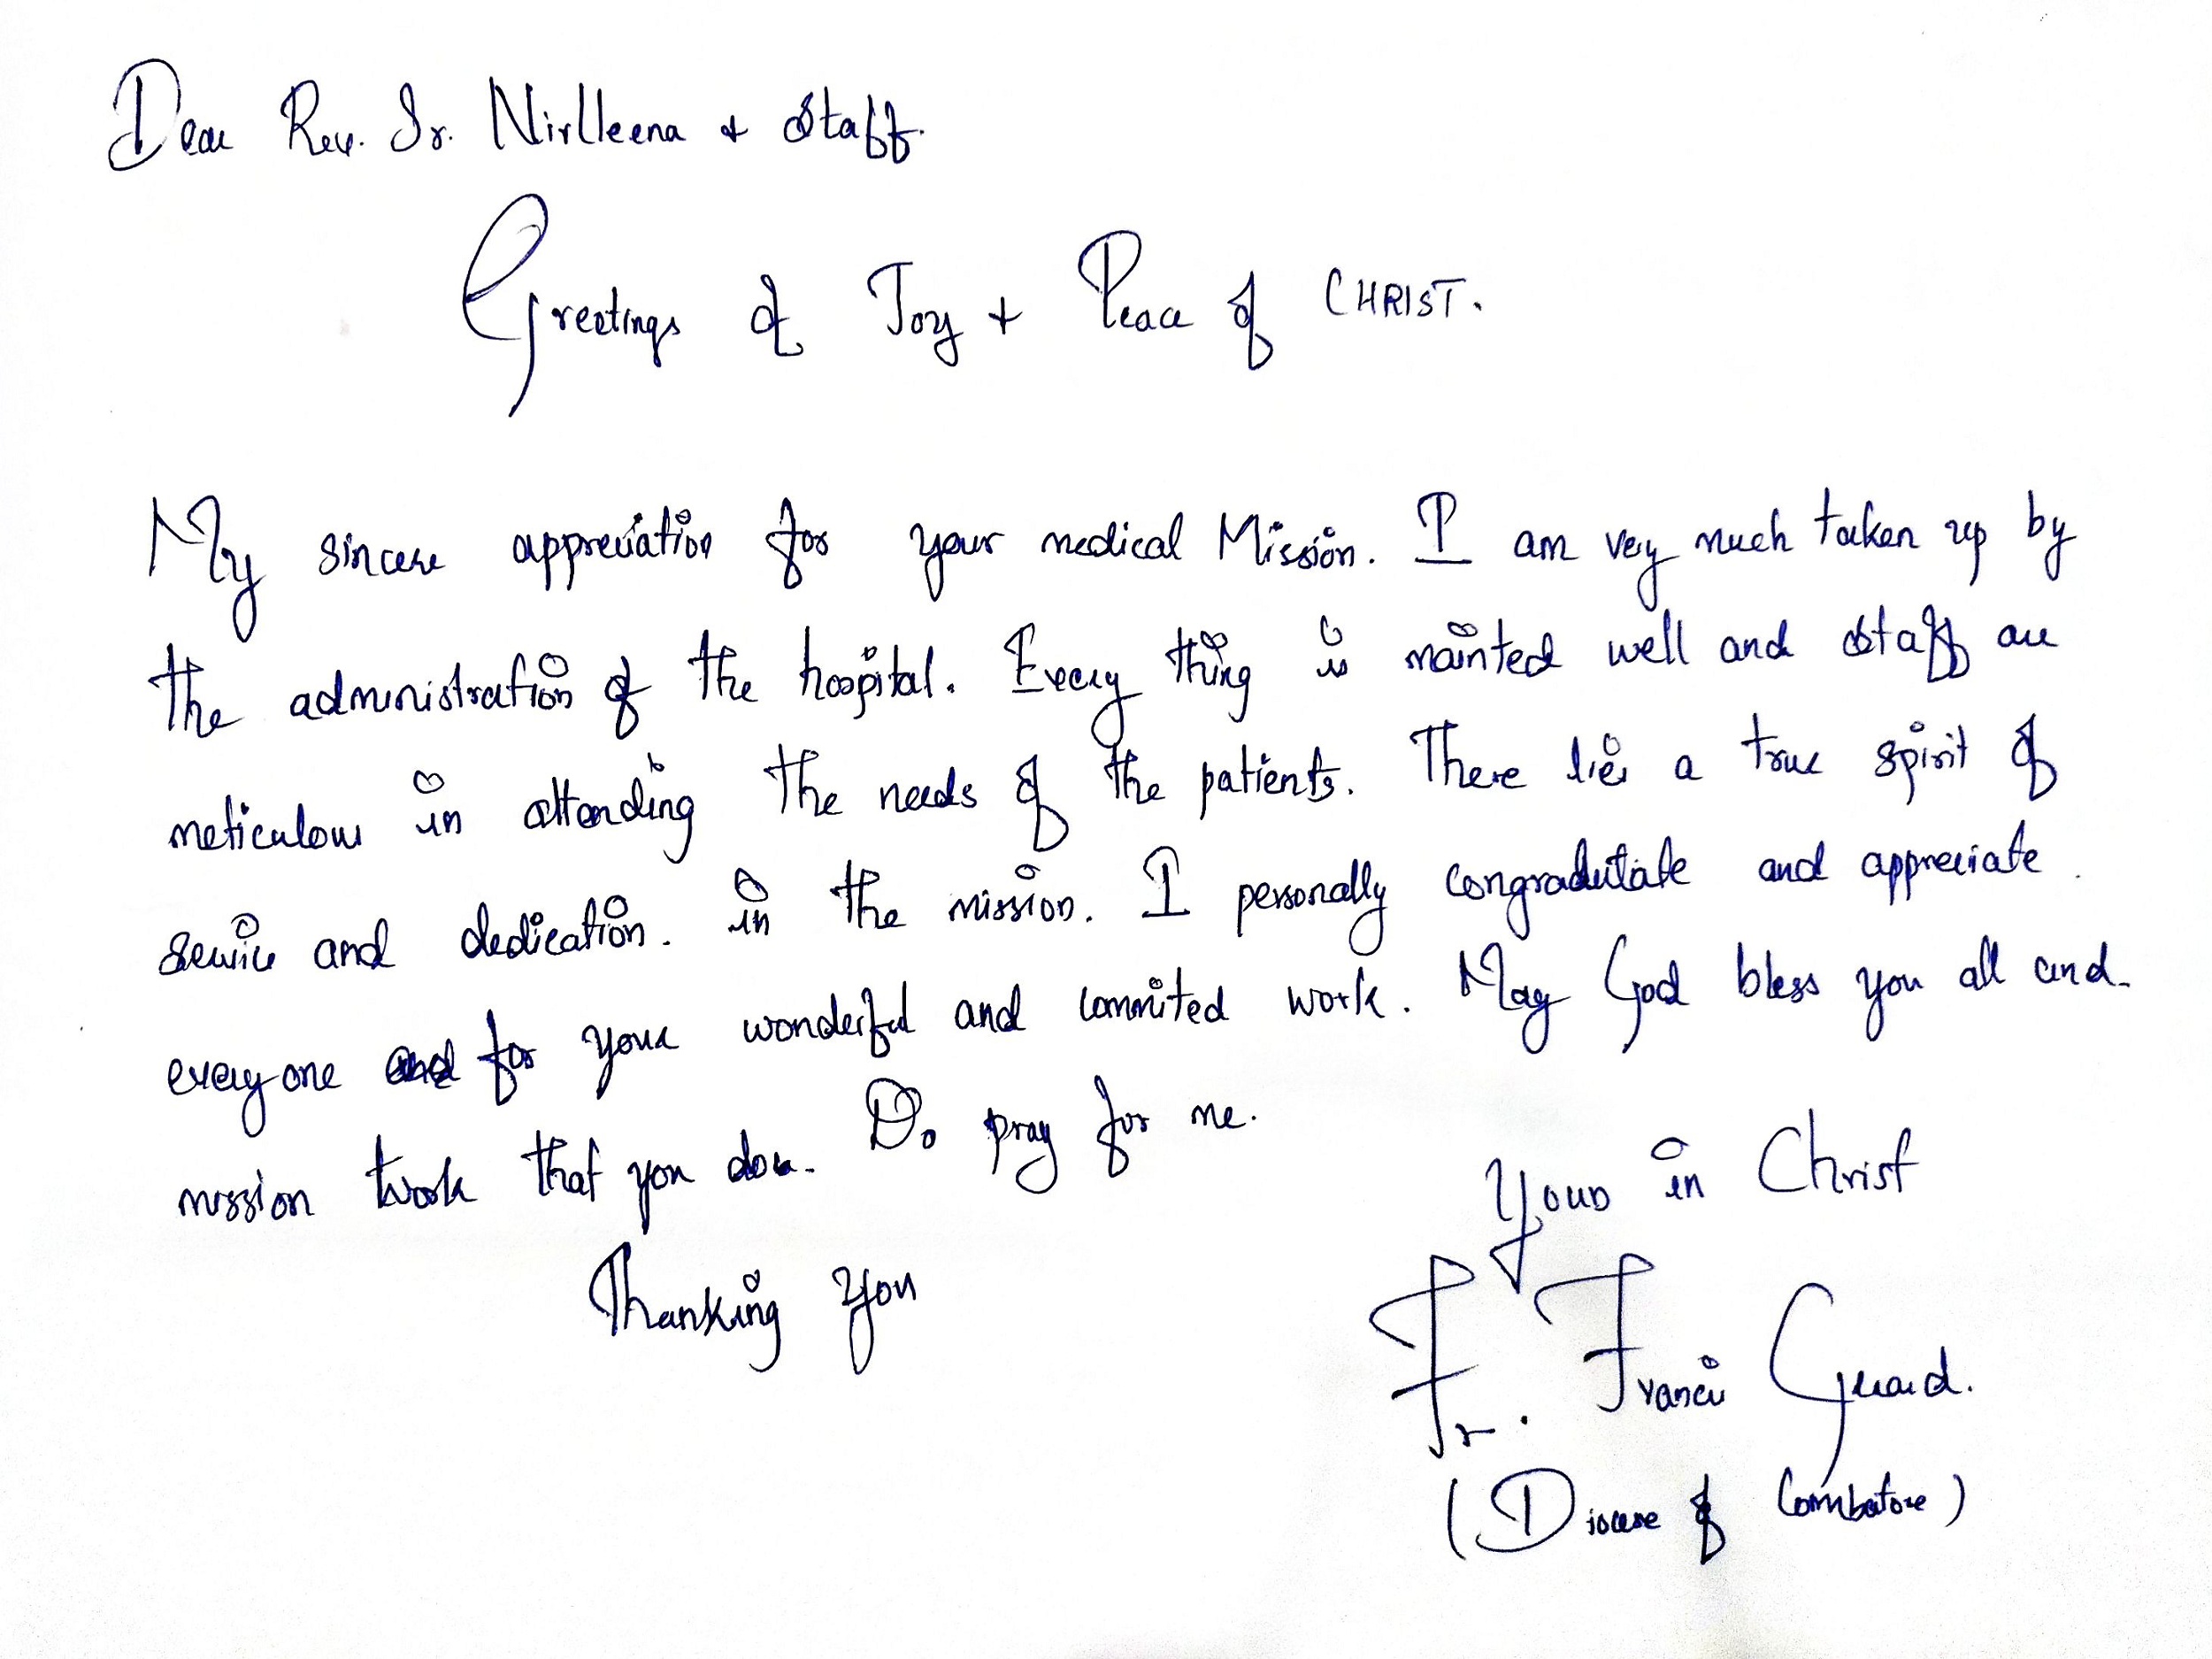 Dear Rev. Sr. Nirlleena + Staff.
Greetings of Joy + Peace of CHRIST.
My sincere appreciation for your medical Mission. I am very much taken up by
the administration of the hospital. Every thing is mainted well and staff are
meticulous in attending the needs of the patients. There lies a true spirit of
service and dedication. in the mission. I personally congradutate and appreciate.
everyone for your wonderful and commited work. May God bless you all and
mission work that you do. Do pray for me.
Thanking you
Yours in Christ
Fr. Francis
(Diocese of Coimbatore)